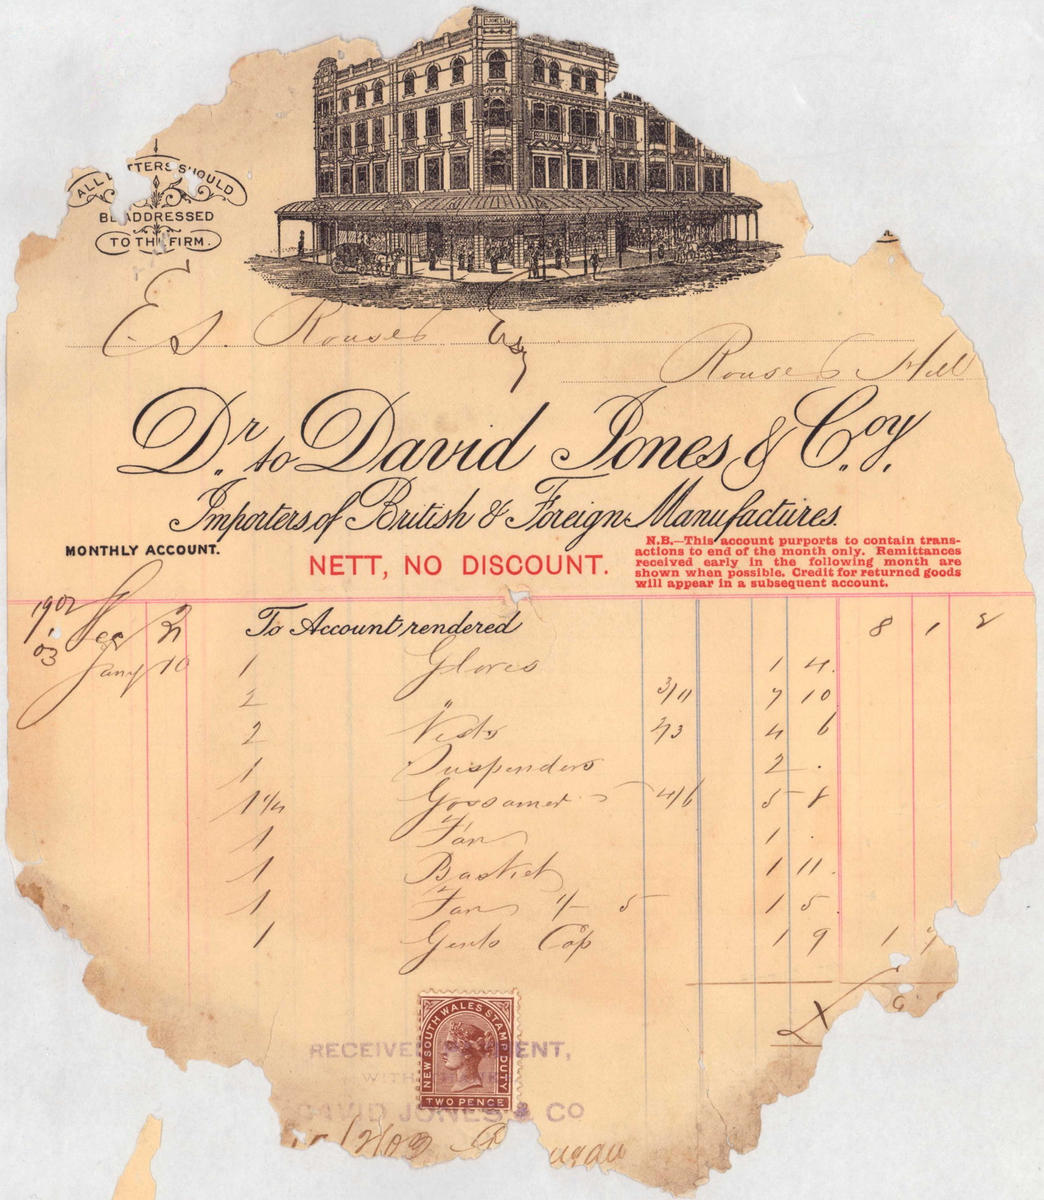 D. JONES &
ALL LETTERS SHOULD
BE ADDRESSED
TO THE FIRM.
E S. Rouse Esq
Rouse Hill
Dr. to David Jones & Coy.
Importers of British & Foreign Manufactures.
MONTHLY ACCOUNT.
NETT, NO DISCOUNT.
N.B.—This account purports to contain trans-
actions to end of the month only. Remittances
received early in the following month are
shown when possible. Credit for returned goods
will appear in a subsequent account.
1902 Dec 2 To Account rendered 8 1 2
'03 Jany 10 1 Gloves 1 4.
2 " 3/11 7 10
2 Vests 2/3 4 6
1 Suspenders 2 .
1 1/4 Gossamer 4/6 5 8
1 Fan 1 .
1 Basket 1 11.
1 Fan 1/- 5 1 5
1 Gents Cap 1 9 1 7
£ 9
NEW SOUTH WALES STAMP DUTY
TWO PENCE
RECEIVED ENT,
WITH
DAVID JONES & CO
/2/03